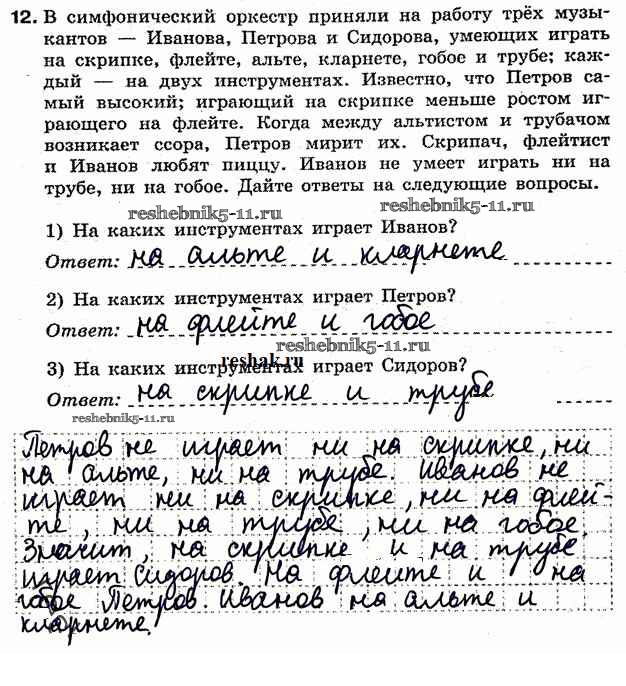 12. В симфонический оркестр приняли на работу трёх музы-
кантов — Иванова, Петрова и Сидорова, умеющих играть
на скрипке, флейте, альте, кларнете, гобое и трубе; каж-
дый — на двух инструментах. Известно, что Петров са-
мый высокий; играющий на скрипке меньше ростом иг-
рающего на флейте. Когда между альтистом и трубачом
возникает ссора, Петров мирит их. Скрипач, флейтист
и Иванов любят пиццу. Иванов не умеет играть ни на
трубе, ни на гобое. Дайте ответы на следующие вопросы.
reshebnik5-11.ru reshebnik5-11.ru
1) На каких инструментах играет Иванов?
Ответ: на альте и кларнете
2) На каких инструментах играет Петров?
Ответ: на флейте и гобое
reshebnik5-11.ru
reshak.ru
3) На каких инструментах играет Сидоров?
Ответ: на скрипке и трубе
reshebnik5-11.ru
Петров не играет ни на скрипке, ни
на альте, ни на трубе. Иванов не
играет ни на скрипке, ни на флей-
те, ни на трубе, ни на гобое.
Значит, на скрипке и на трубе
играет Сидоров. На флейте и на
гобое Петров. Иванов на альте и
кларнете.